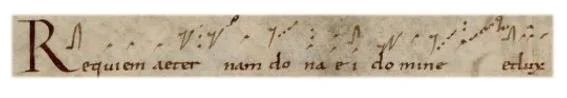 Requiem aeter nam do na e i do mine et lux